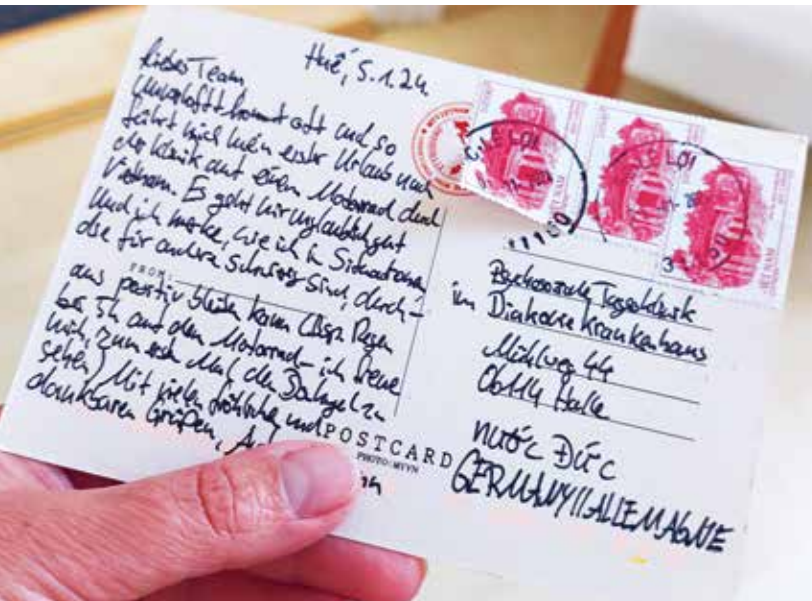 Huế, 5.1.24
Liebes Team
Unverhofft kommt oft und so
führt mich mein erster Urlaub nach
der Klinik auf einem Motorrad durch
Vietnam. Es geht mir unglaublich gut
und ich merke, wie ich in Situationen,
die für andere schwierig sind, durch-
FROM:
aus positiv bleiben kann (Bsp. Regen
bei 5h auf dem Motorrad – ich freue
mich, zum ersten Mal den
sehen) Mit vielen fröhlichen und
dankbaren Grüßen,
POSTCARD
LE LOI
LE LOI
Psychosoziale Tagesklinik
im Diakoniekrankenhaus
Mühlweg 44
06114 Halle
nước Đức
GERMANY//ALLEMAGNE